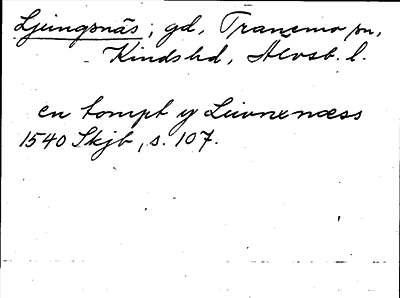 Ljungsnäs, gd, Tranemo sn,
Kindshd, Älvsb. l.
en tompt y Liwnxnæss
1540 Skjb, s. 107.